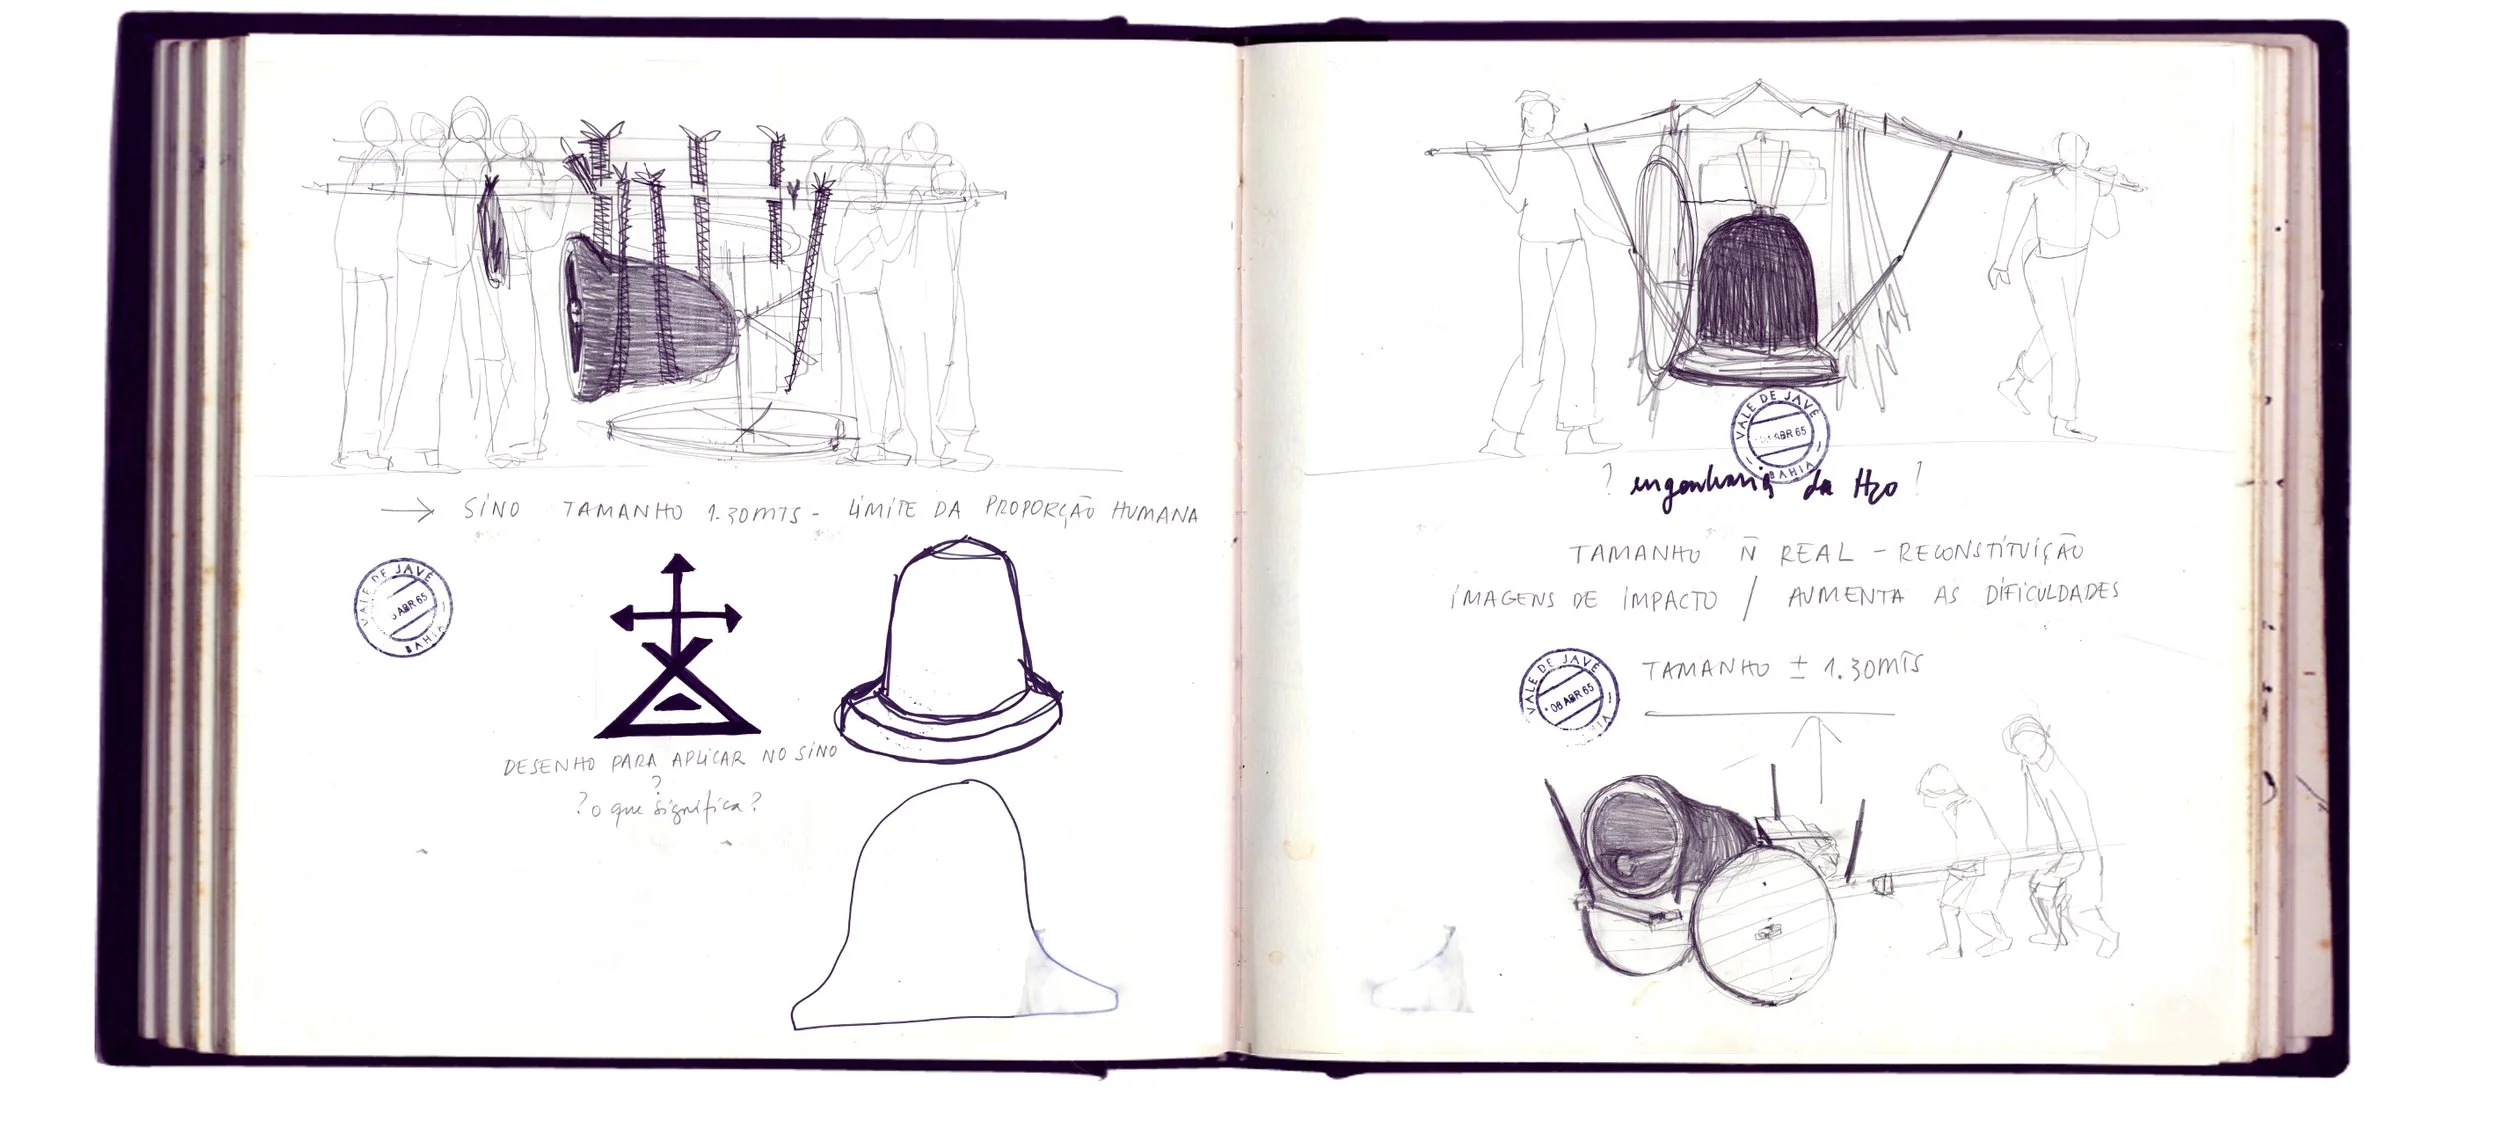 → SINO TAMANHO 1.30MTS - LIMITE DA PROPORÇÃO HUMANA
VALE DE JAVÉ
ABR 65
BAHIA
DESENHO PARA APLICAR NO SINO
?
? o que significa?
VALE DE JAVÉ
ABR 65
BAHIA
? engenharia da Hzo !
TAMANHO Ñ REAL - RECONSTITUIÇÃO
IMAGENS DE IMPACTO / AUMENTA AS DIFICULDADES
VALE DE JAVÉ
08 ABR 65
TAMANHO ± 1.30MTS